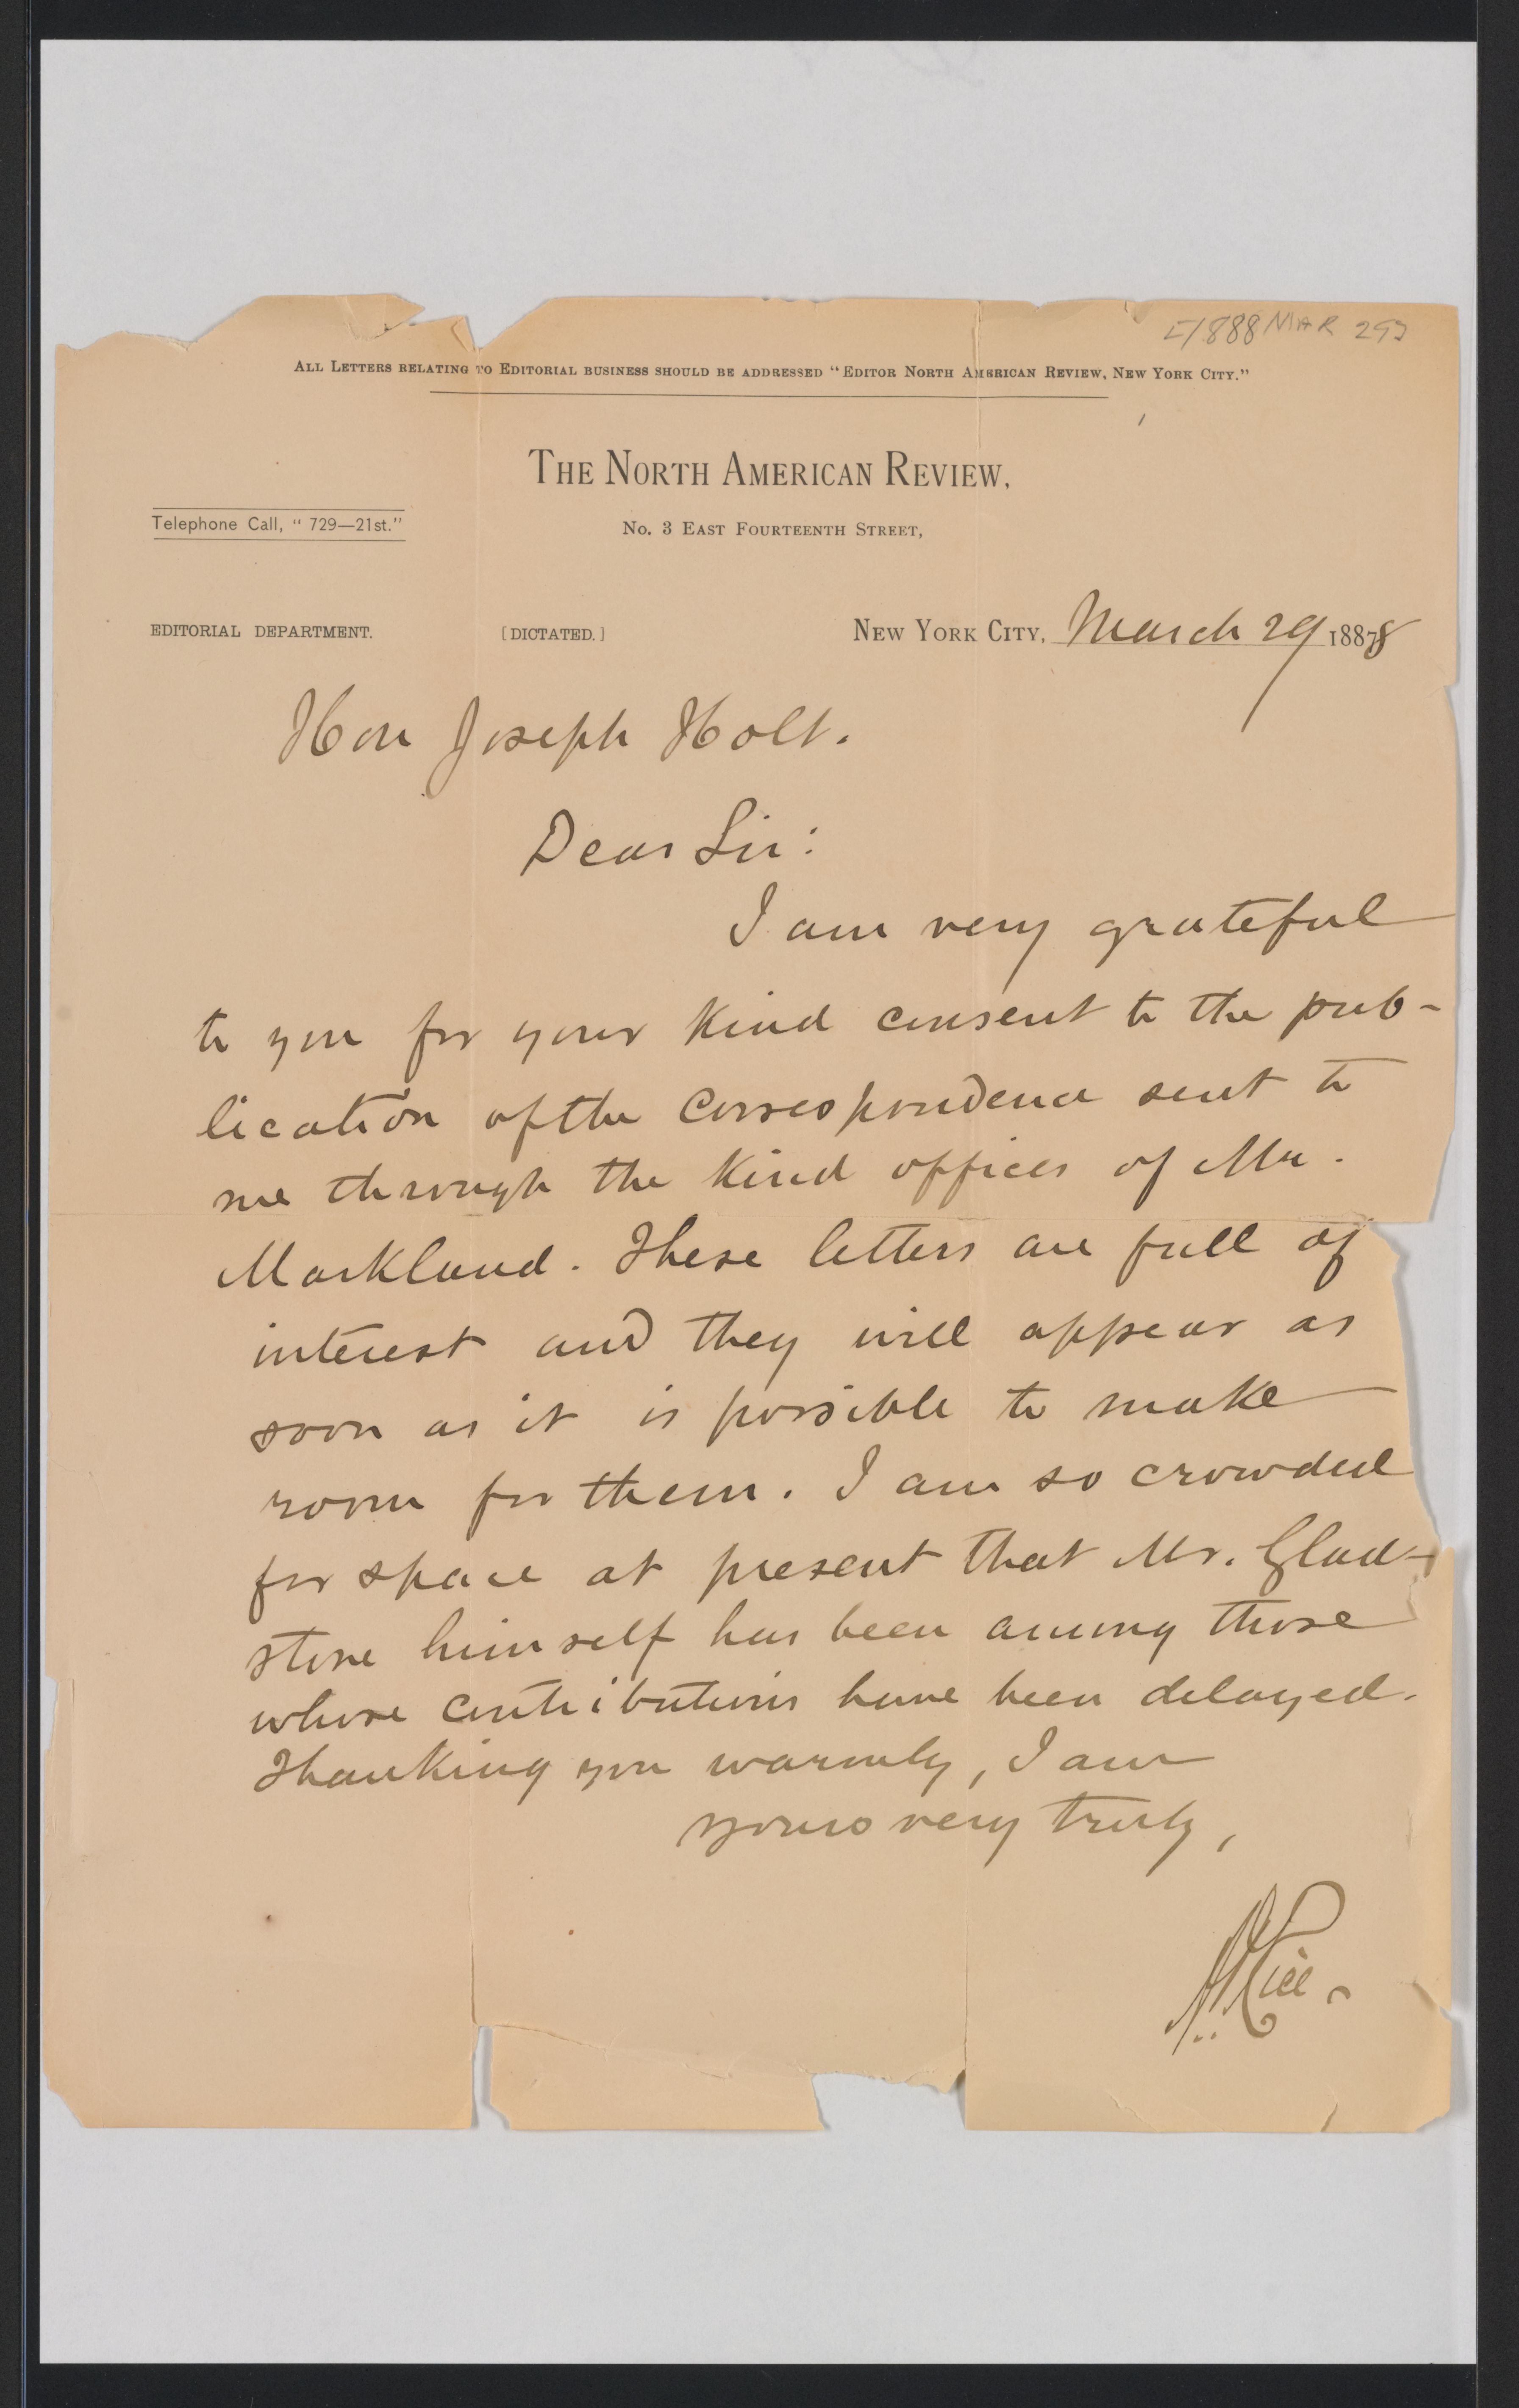 [1888 MAR 29]
ALL LETTERS RELATING TO EDITORIAL BUSINESS SHOULD BE ADDRESSED "EDITOR NORTH AMERICAN REVIEW, NEW YORK CITY."
THE NORTH AMERICAN REVIEW,
Telephone Call, "729—21st."
No. 3 EAST FOURTEENTH STREET,
EDITORIAL DEPARTMENT. [DICTATED.] NEW YORK CITY, March 29 18878
Hon Joseph Holt.
Dear Sir:
I am very grateful
to you for your kind consent to the pub-
lication of the correspondence sent to
me through the kind offices of Mr.
Markland. These letters are full of
interest and they will appear as
soon as it is possible to make
room for them. I am so crowded
for space at present that Mr. Glad-
stone himself has been among those
whose contributions have been delayed.
Thanking you warmly, I am
yours very truly,
Rice.